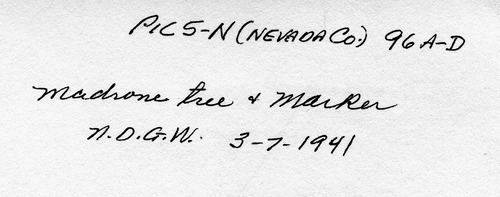 PIC 5-N (NEVADA CO.) 96 A-D
Madrone tree & Marker
N.D.G.W. 3-7-1941